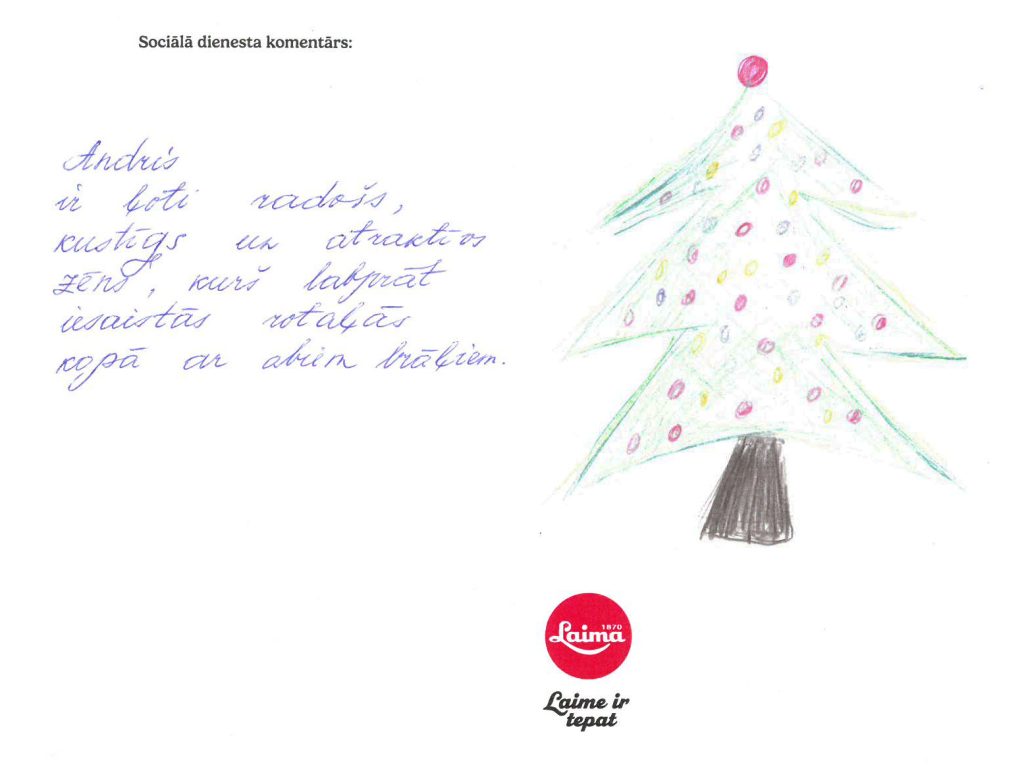 Sociālā dienesta komentārs:
Andris
ir ļoti radošs,
kustīgs un atraktīvs
zēns, kurš labprāt
iesaistās rotaļās
kopā ar abiem brāļiem.
1870
Laima
Laime ir
tepat